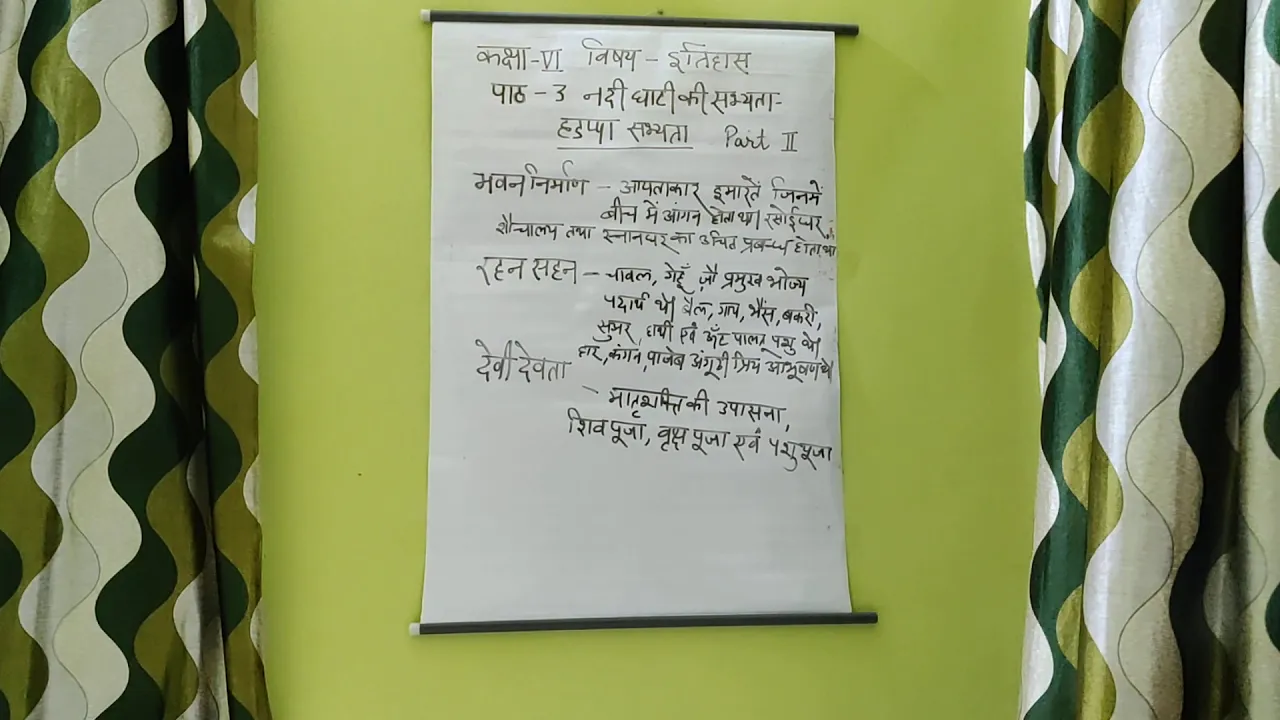 कक्षा-VI विषय - इतिहास
पाठ - 3 नदी घाटी की सभ्यता-
हडप्पा सभ्यता Part II
भवन निर्माण - आयताकार इमारतें जिनमें
बीच में आंगन होता था। रसोईघर,
शौचालय तथा स्नानघर का उचित प्रबन्ध होता था
रहन सहन - चावल, गेहूँ, जौ प्रमुख भोज्य
पदार्थ थे। बैल, गाय, भैंस, बकरी,
सुअर, हाथी एवं ऊँट पालतू पशु थे।
हार, कंगन, पाजेब अंगूठी प्रिय आभूषण थे।
देवी देवता - मातृशक्ति की उपासना,
शिव पूजा, वृक्ष पूजा एवं पशु पूजा